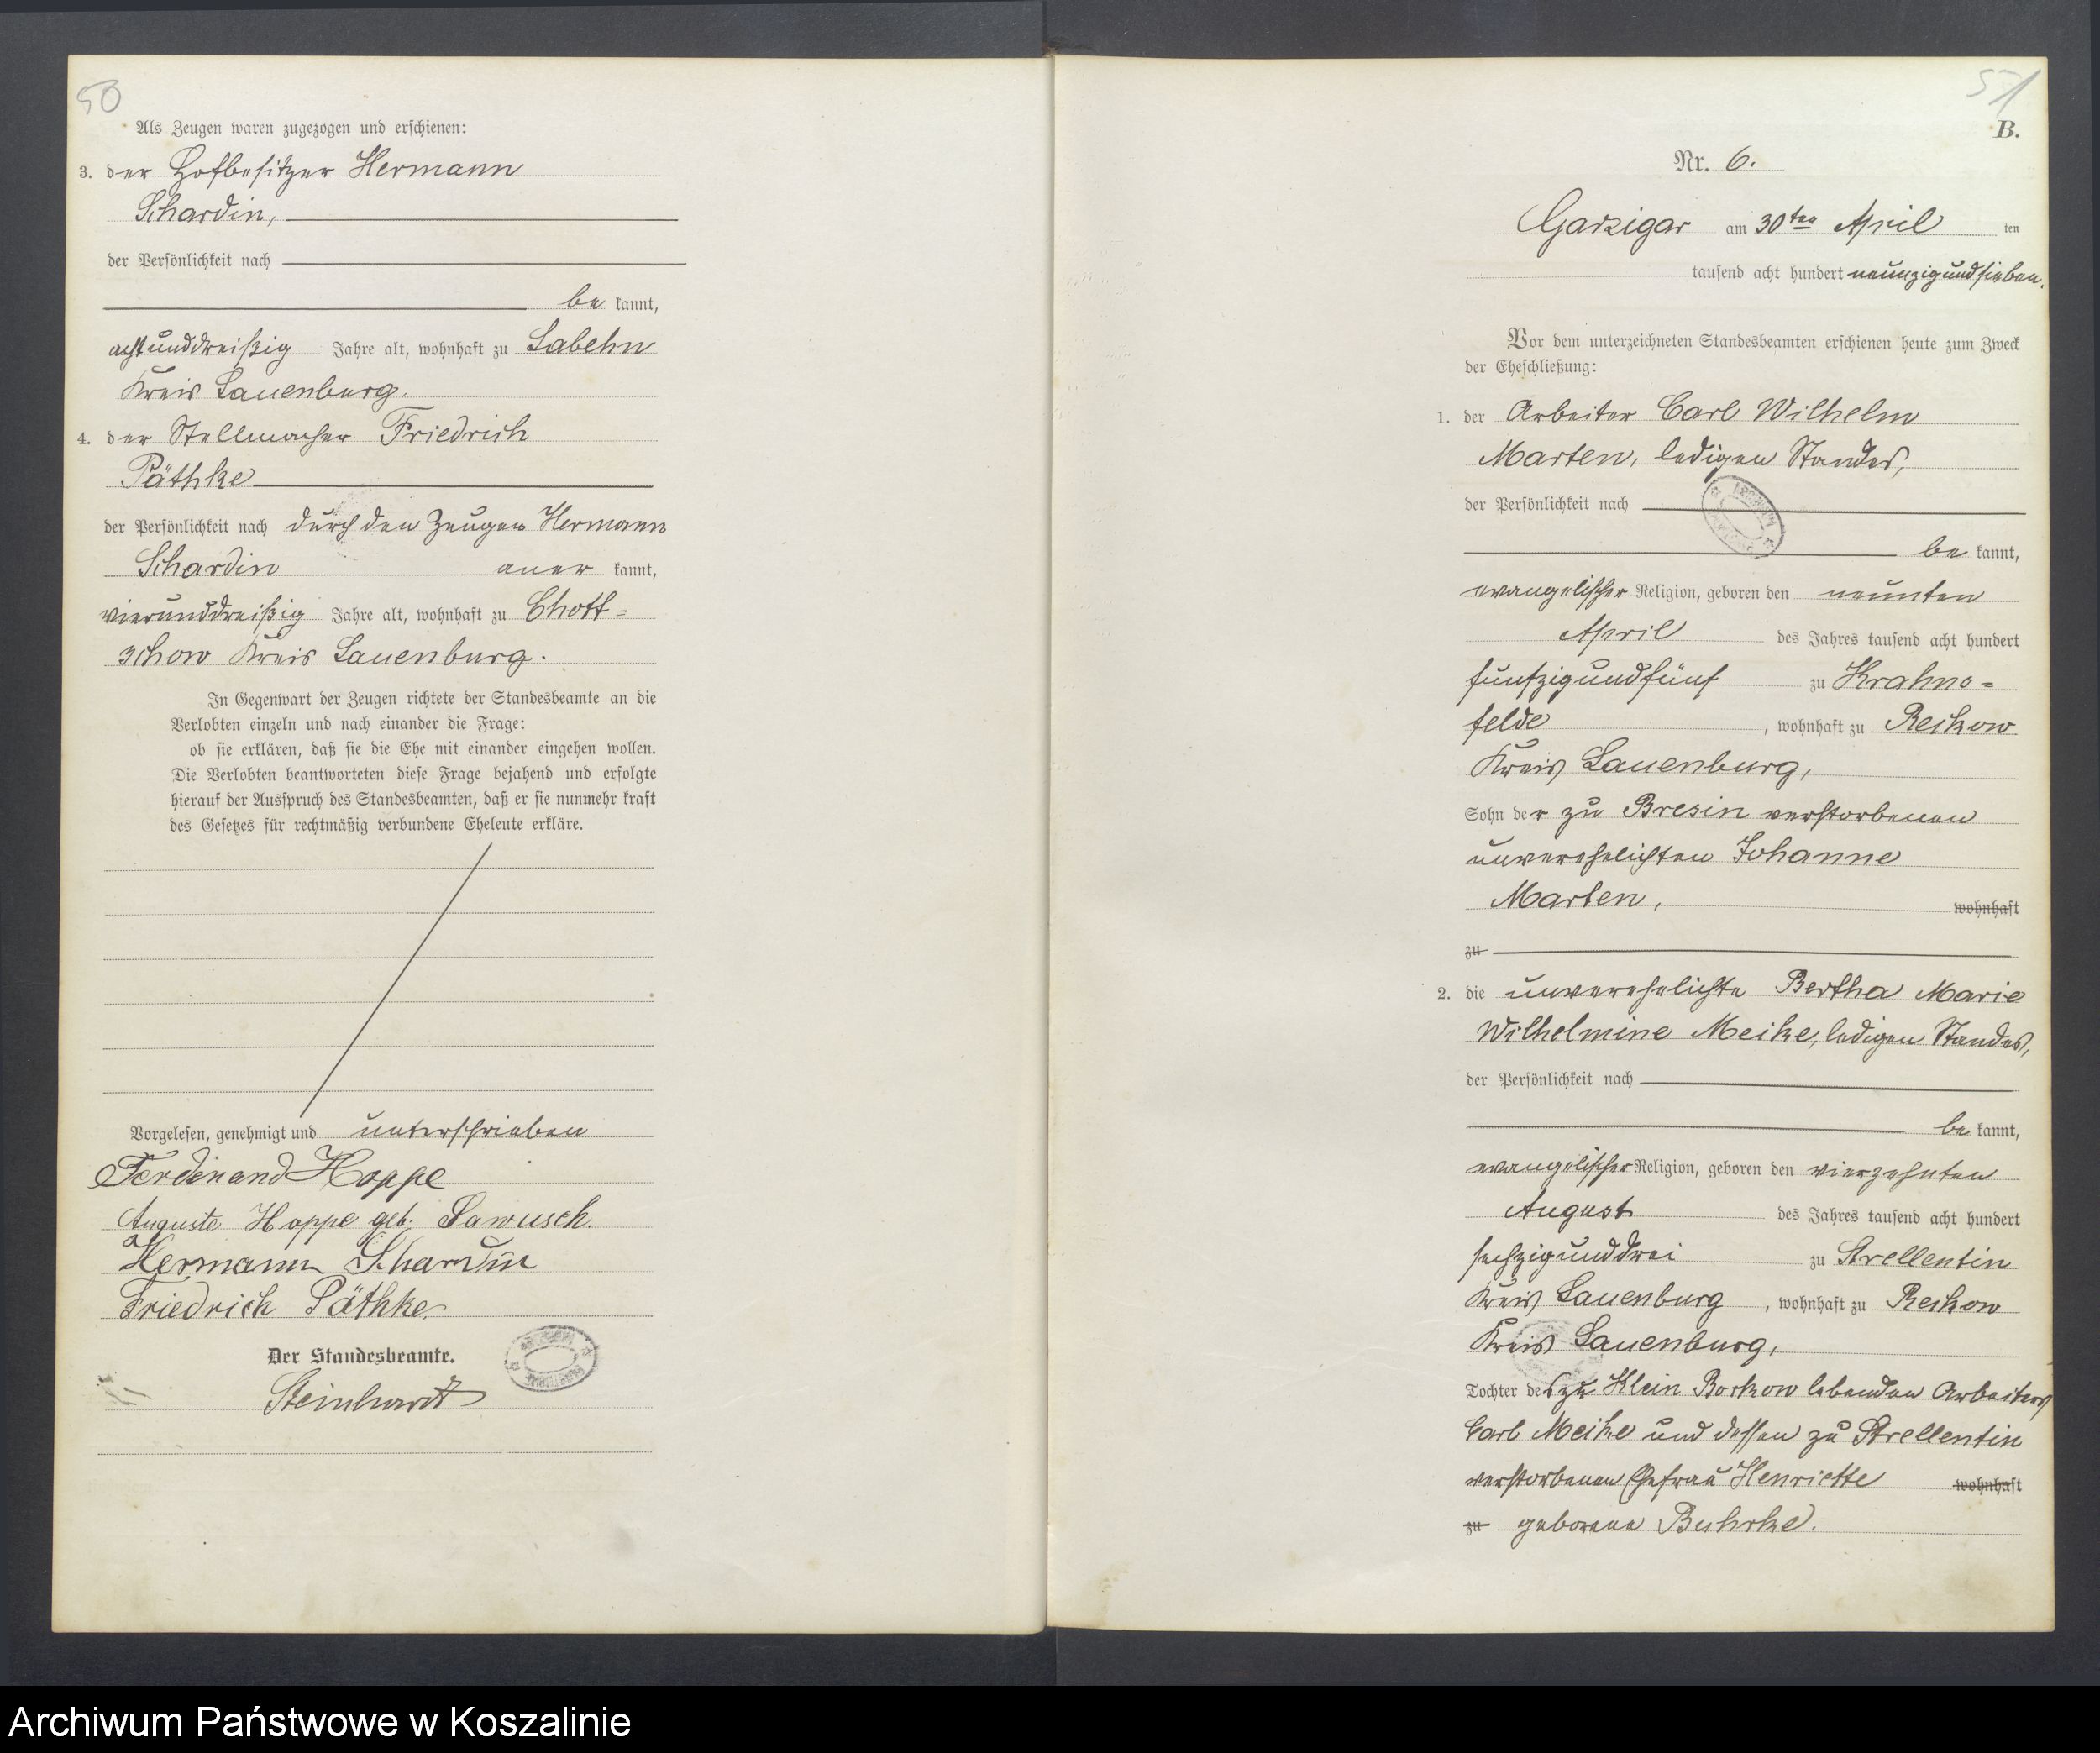 50
Als Zeugen waren zugezogen und erschienen:
3. der Hofbesitzer Hermann
Schardin,
der Persönlichkeit nach
be kannt,
achtunddreißig Jahre alt, wohnhaft zu Labehn
Kreis Lauenburg.
4. der Stellmacher Friedrich
Päthke
der Persönlichkeit nach durch den Zeugen Hermann
Schardin aner kannt,
vierunddreißig Jahre alt, wohnhaft zu Chott=
schow Kreis Lauenburg.
In Gegenwart der Zeugen richtete der Standesbeamte an die
Verlobten einzeln und nach einander die Frage:
ob sie erklären, daß sie die Ehe mit einander eingehen wollen.
Die Verlobten beantworteten diese Frage bejahend und erfolgte
hierauf der Ausspruch des Standesbeamten, daß er sie nunmehr kraft
des Gesetzes für rechtmäßig verbundene Eheleute erkläre.
Vorgelesen, genehmigt und unterschrieben
Ferdinand Hoppe
Auguste Hoppe geb. Sawusch.
Hermann Schardin
Friedrich Päthke.
Der Standesbeamte.
Steinhardt
51
B.
Nr. 6.
Garzigar am 30ten April ten
tausend acht hundert neunzigundsieben.
Vor dem unterzeichneten Standesbeamten erschienen heute zum Zweck
der Eheschließung:
1. der Arbeiter Carl Wilhelm
Marten, ledigen Standes,
der Persönlichkeit nach
be kannt,
evangelischer Religion, geboren den neunten
April des Jahres tausend acht hundert
fünfzigundfünf zu Krahns=
felde, wohnhaft zu Reckow
Kreis Lauenburg,
Sohn der zu Bresin verstorbenen
unverehelichten Johanne
Marten, wohnhaft
zu
2. die unverehelichte Bertha Marie
Wilhelmine Meike, ledigen Standes,
der Persönlichkeit nach
be kannt,
evangelischer Religion, geboren den vierzehnten
August des Jahres tausend acht hundert
sechzigunddrei zu Strellentin
Kreis Lauenburg, wohnhaft zu Reckow
Kreis Lauenburg,
Tochter des zu Klein Borkow lebenden Arbeiters
Carl Meike und dessen zu Strellentin
verstorbenen Ehefrau Henriette wohnhaft
zu geborene Buhrke.
Archiwum Państwowe w Koszalinie